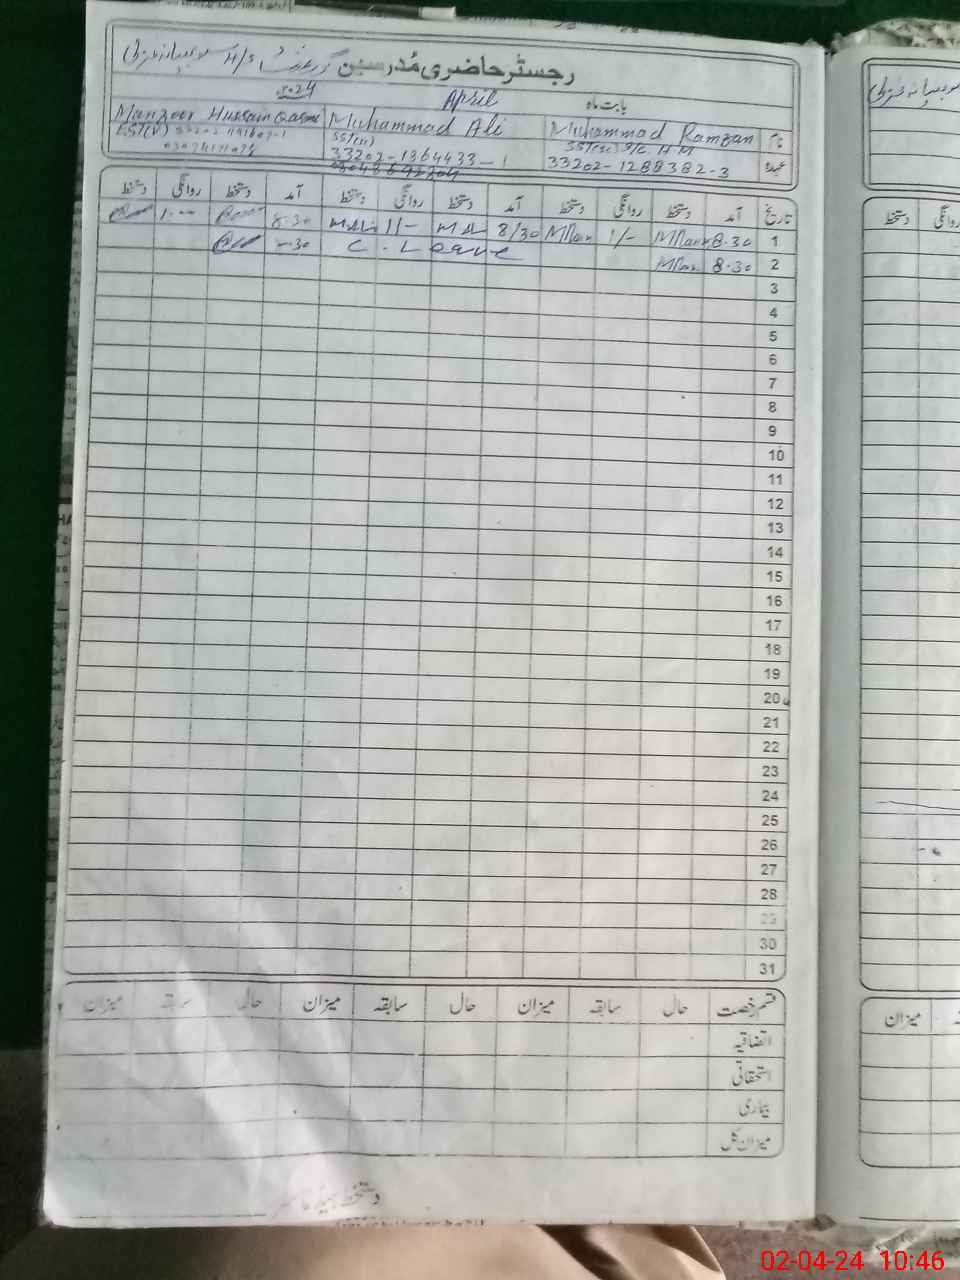 رجسٹر حاضری مُدرسین
بابت ماہ April 2024
نام Muhammad Ramzan Muhammad Ali Manzoor Hussain Qasmi
SST(Sc) I/C H M SST(Sc) EST(V)
عہدہ 33202-1288382-3 33202-1364433-1
تاریخ آمد دستخط روانگی دستخط آمد دستخط روانگی دستخط آمد دستخط روانگی دستخط
1 8.30 1/- 8/30 M Ali 1/- M Ali 8.30 1:--
2 8.30 C. Leave
3
4
5
6
7
8
9
10
11
12
13
14
15
16
17
18
19
20
21
22
23
24
25
26
27
28
29
30
31
قسم رخصت حال سابقہ میزان حال سابقہ میزان حال سابقہ میزان
اتفاقیہ
استحقاقی
بیماری
میزان کل
دستخط ہیڈ ماسٹر
دستخط روانگی
میزان
02-04-24 10:46